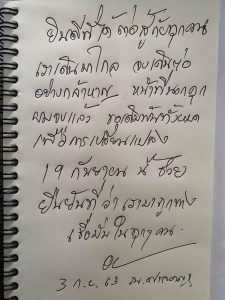 ยินดีที่ได้ต่อสู้กับทุกคน
เราเดินมาไกล จงเดินต่อ
อย่างกล้าหาญ หน้าที่นอกคุก
ผมจบแล้ว ขอเดิมพันทั้งหมด
เพื่อการเปลี่ยนแปลง
19 กันยายน นี้ ช่วย
ยืนยันที่ว่าเรามาถูกทาง
เชื่อมั่นในทุกๆ คน.
3 ก.ย. 63